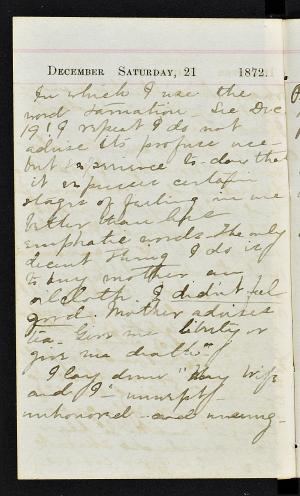 DECEMBER SATURDAY, 21 1872.
In which I use the
word tarnation. See Dec
19! I repeat I do not
advise its profuse use
but experience to-day that
it expresses certain
stages of feeling in one
better than less
emphatic words. The only
decent thing I do is
to buy mother an
oilcloth. I didn't feel
good. Mother advises
tea. "Give me liberty or
give me death"!
I lay down "My Wife
and I" unwept
unhonored and unsung-